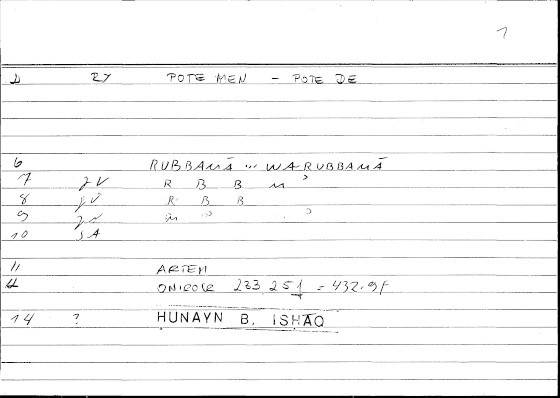 7
2 RY POTE MEN - POTE DE
6 RUBBAMĀ ... WA-RUBBAMĀ
7 JV R B B M ʾ
8 JV R B B
9 ʾ
10 JA
11 ARTEM
ONIROCR 233, 251 = 432.9f
14 ? HUNAYN B. ISHAQ